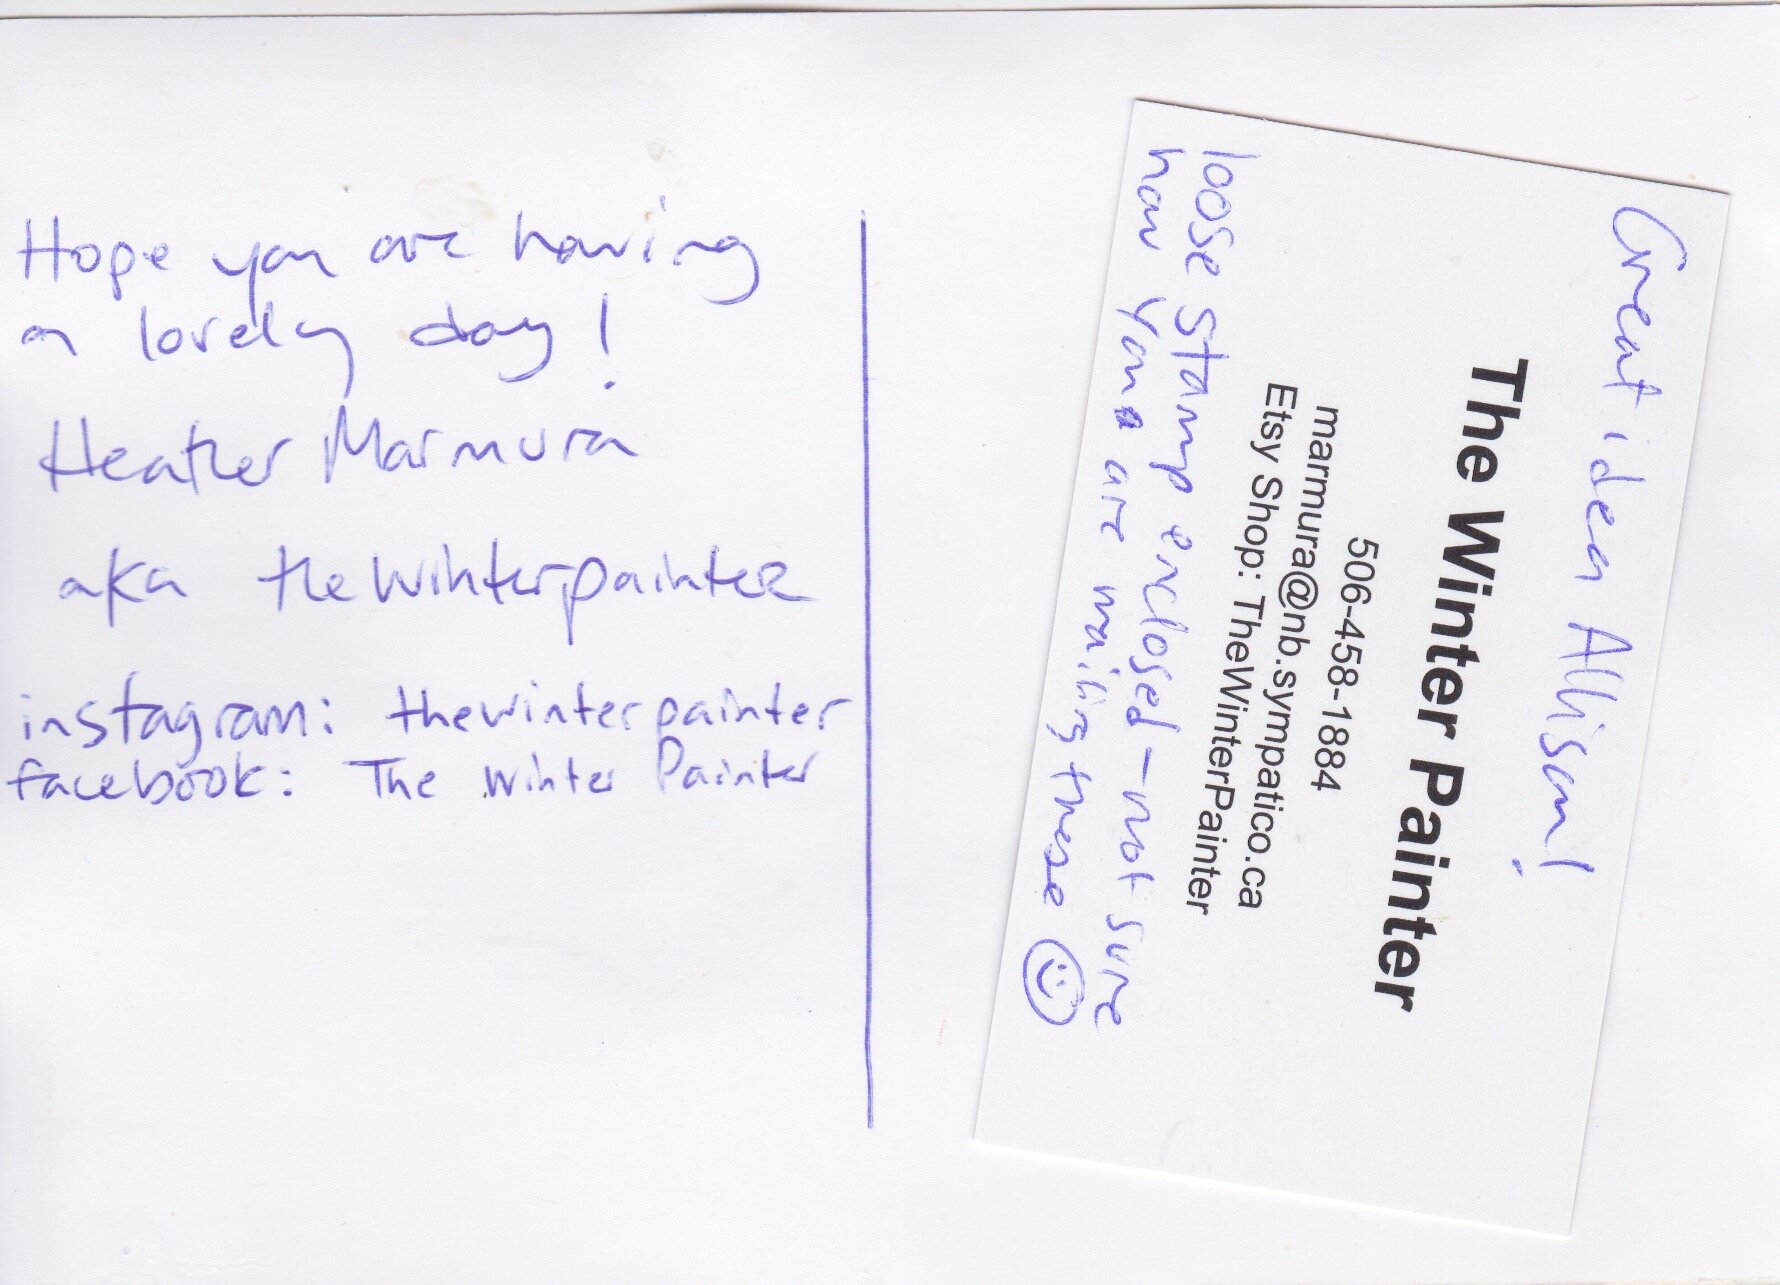 Hope you are having
a lovely day!
Heather Marmura
aka thewinterpainter
instagram: thewinterpainter
facebook: The Winter Painter
Great idea Allison!
The Winter Painter
506-458-1884
marmura@nb.sympatico.ca
Etsy Shop: TheWinterPainter
loose stamp enclosed - not sure
how you are mailing these